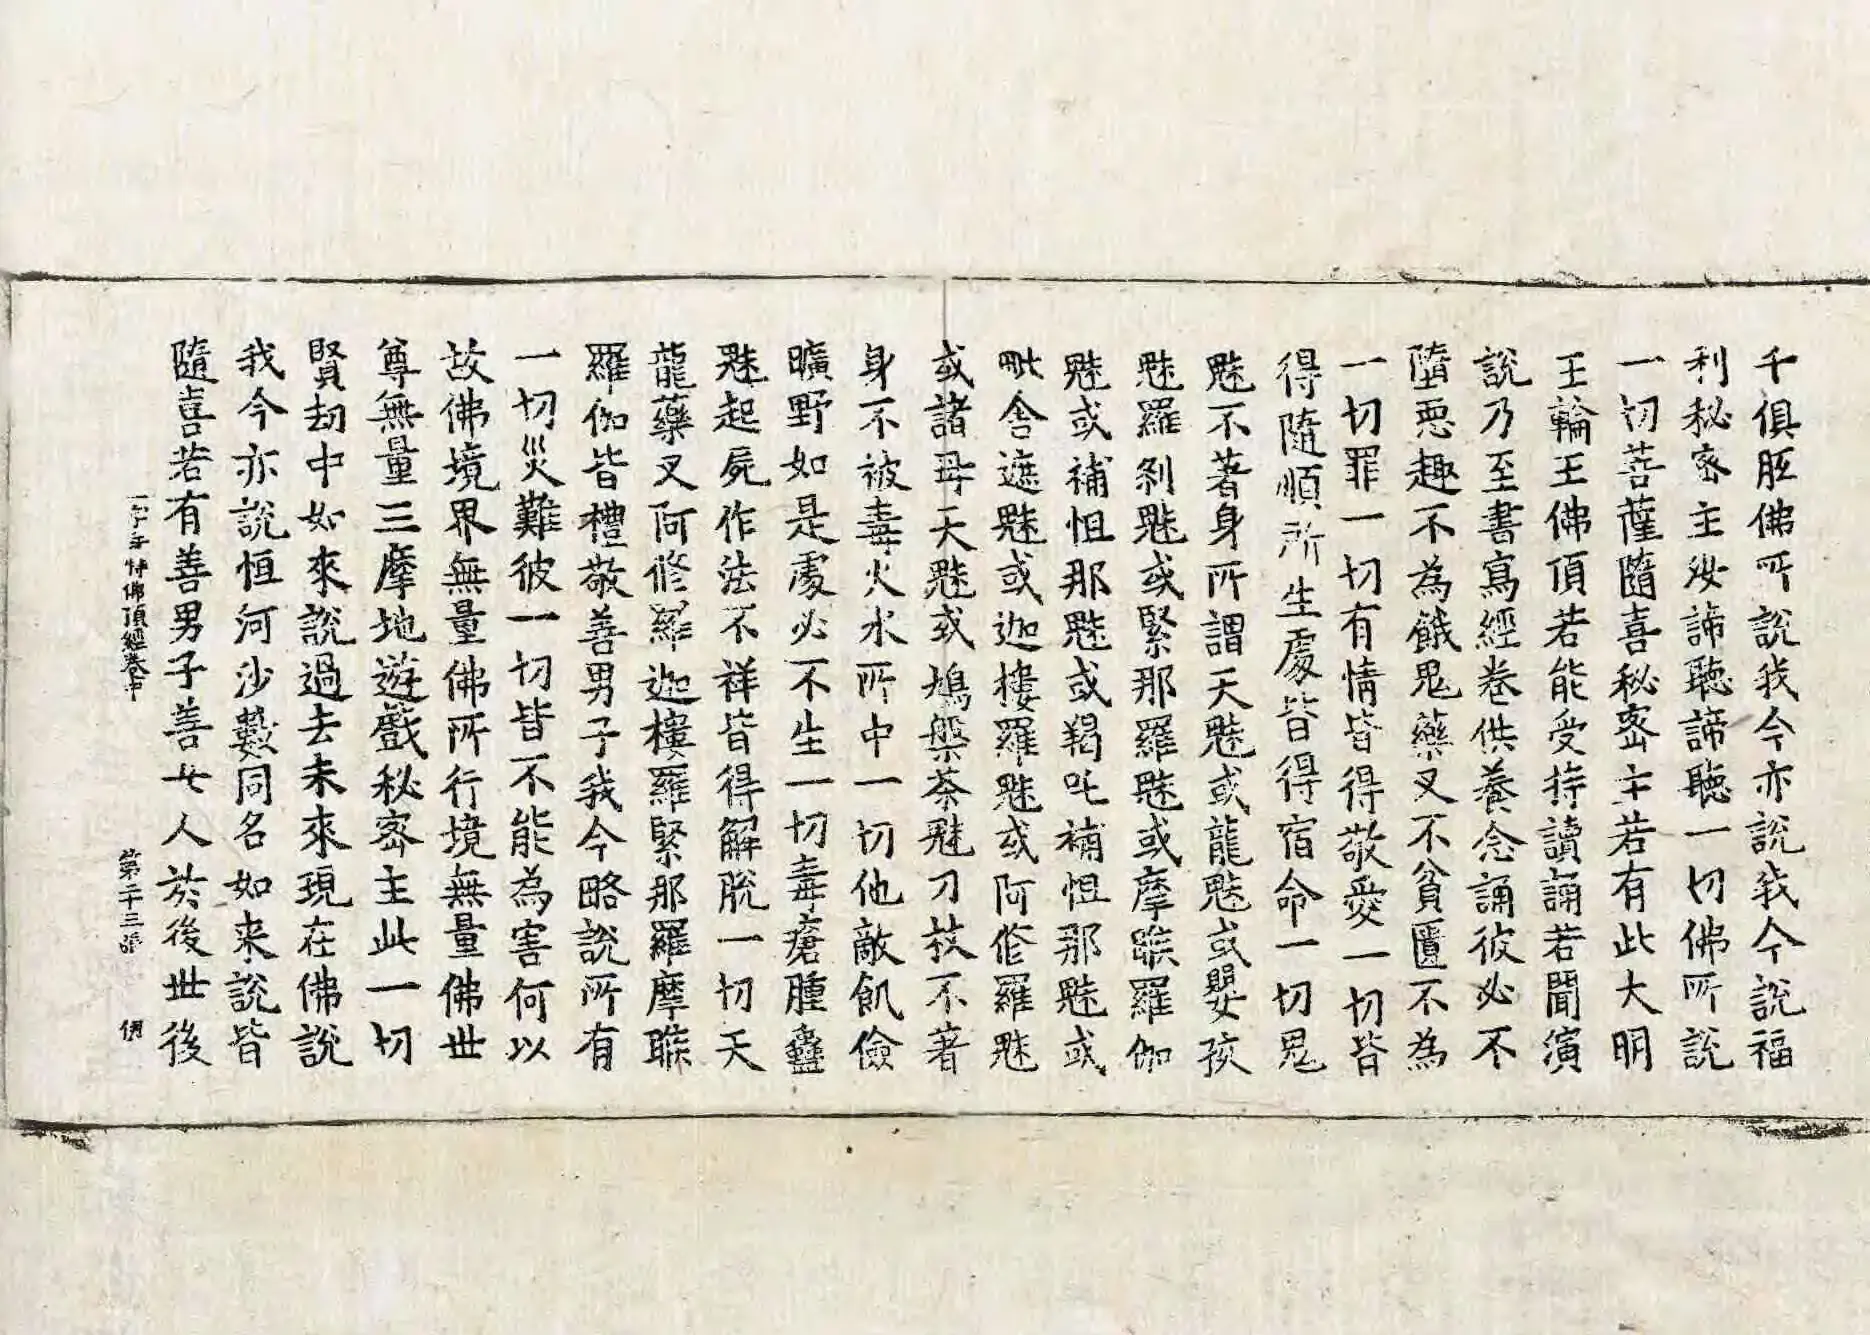 千俱胝佛所說我今亦說我今說福
利秘密主汝諦聽諦聽一切佛所說
一切菩薩隨喜秘密主若有此大明
王輪王佛頂若能受持讀誦若聞演
說乃至書寫經卷供養念誦彼必不
墮惡趣不為餓鬼藥叉不貧匱不為
一切罪一切有情皆得敬愛一切皆
得隨順所生處皆得宿命一切鬼
魅不著身所謂天魅或龍魅或嬰孩
魅羅剎魅或緊那羅魅或摩睺羅伽
魅或補怛那魅或羯吒補怛那魅或
毗舍遮魅或迦樓羅魅或阿修羅魅
或諸母天魅或鳩槃荼魅刀杖不著
身不被毒火水所中一切他敵飢儉
曠野如是處必不生一切毒瘡腫蠱
魅起屍作法不祥皆得解脫一切天
龍藥叉阿修羅迦樓羅緊那羅摩睺
羅伽皆禮敬善男子我今略說所有
一切災難彼一切皆不能為害何以
故佛境界無量佛所行境無量佛世
尊無量三摩地遊戲秘密主此一切
賢劫中如來說過去未來現在佛說
我今亦說恒河沙數同名如来說皆
隨喜若有善男子善女人於後世後
一字奇特佛頂經卷中 第二十三張